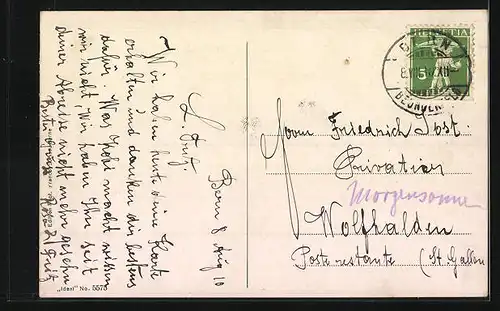 Bern 8 Aug 10
L. Fritz
Wir haben heute deine Karte
erhalten und danken dir bestens
dafür. Was macht wissen
wir nicht, wir haben Ihn seit
deiner Abreise nicht mehr gesehn
Beste Grüsse Rosa & Fritz
HELVETIA
5
Herrn Friedrich Jost.
Privatier
Morgensonne
Wolfhalden
Poste restante (St. Gallen
„Ideal" No. 5575